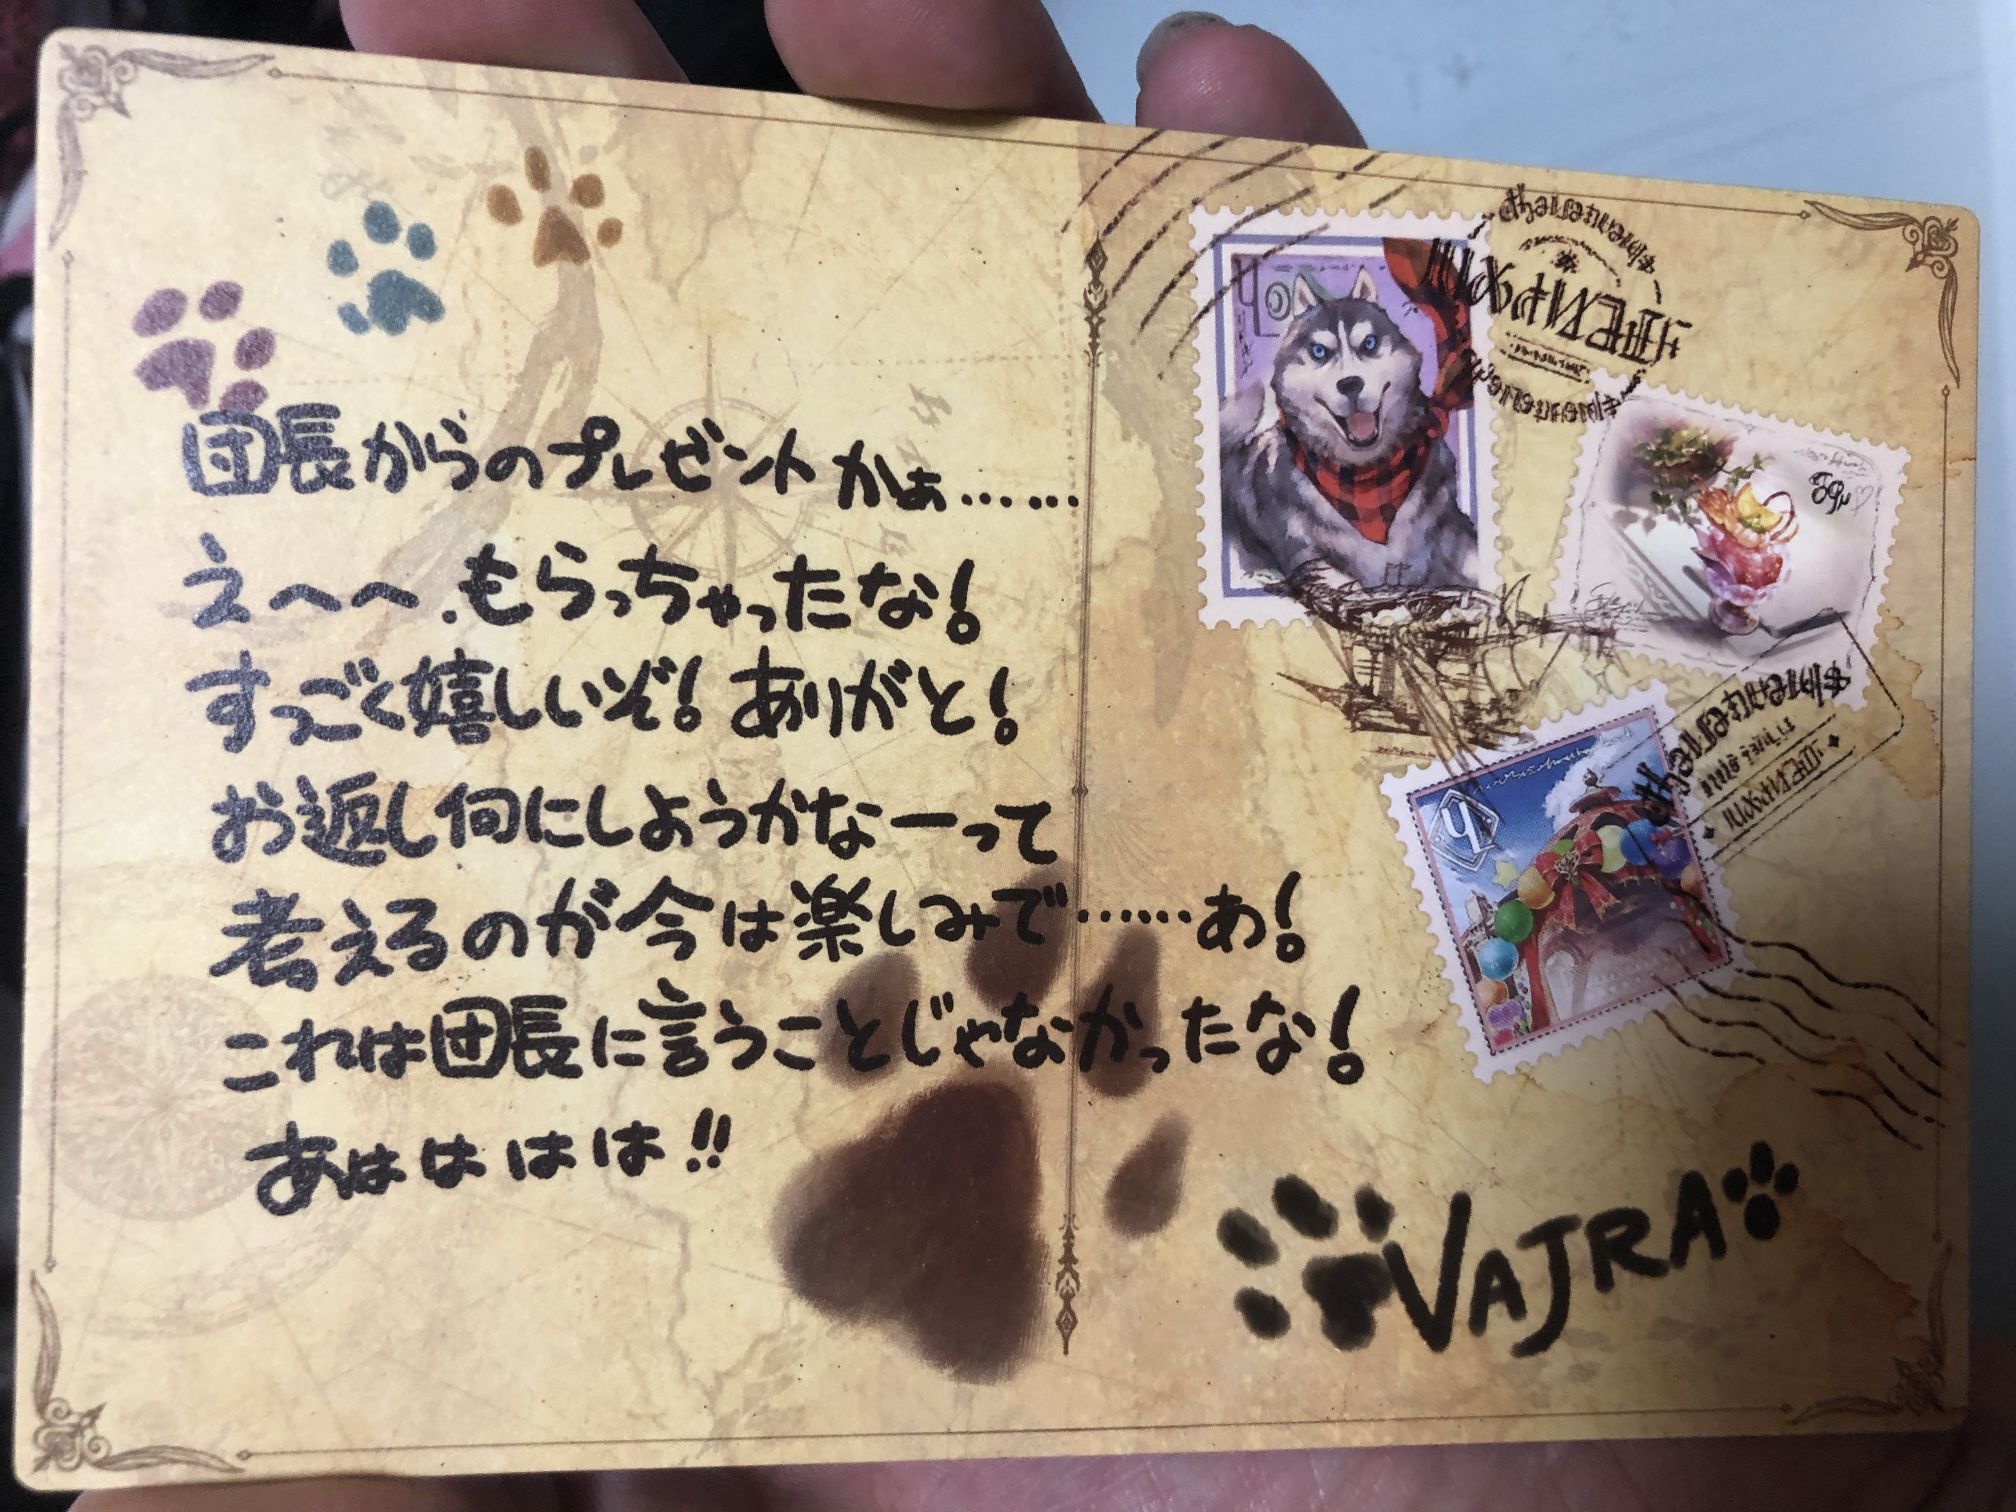 団長からのプレゼントかぁ……
えへへ、もらっちゃったな！
すっごく嬉しいぞ！ありがと！
お返し何にしようかなーって
考えるのが今は楽しみで……あ！
これは団長に言うことじゃなかったな！
あはははは!!
VAJRA